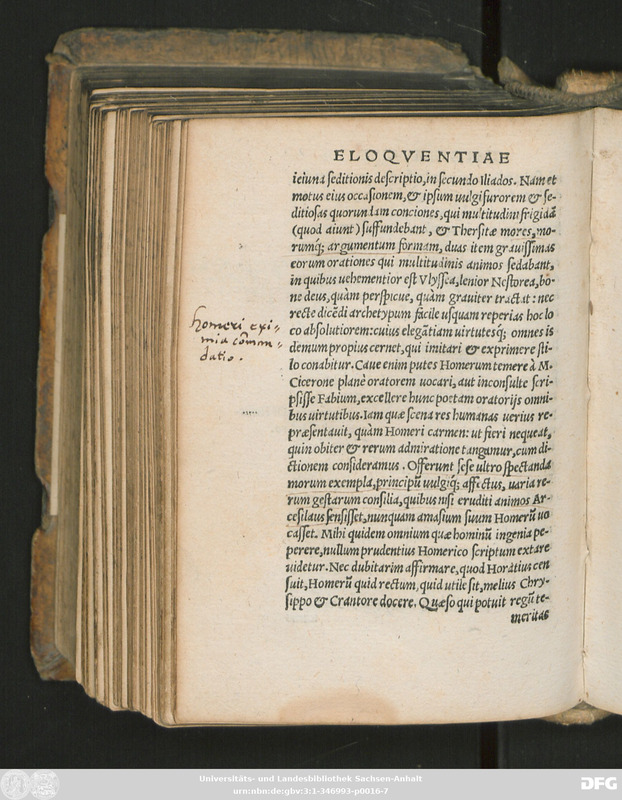 ELOQVENTIAE
ieiuna seditionis descriptio, in secundo Iliados. Nam et
motus eius occasionem, & ipsum uulgi furorem & se-
ditiosas quorundam conciones, qui multitudini frigidã
(quod aiunt) suffundebant, & Thersitæ mores, mo-
rumq́; argumentum formam, duas item grauissimas
eorum orationes qui multitudinis animos sedabant,
in quibus uehementior est Vlyssea, lenior Nestorea, bo-
ne deus, quàm perspicue, quàm grauiter tractat: nec
recte dicẽdi archetypum facile usquam reperias hoc lo
co absolutiorem: cuius elegãtiam uirtutesq́; omnes is
demum propius cernet, qui imitari & exprimere sti-
lo conabitur. Caue enim putes Homerum temere à M.
Cicerone planè oratorem uocari, aut inconsulte scri-
psisse Fabium, excellere hunc poetam oratorijs omni-
bus uirtutibus. Iam quæ scena res humanas uerius re-
præsentauit, quàm Homeri carmen: ut fieri nequeat,
quin obiter & rerum admiratione tangamur, cum di-
ctionem consideramus. Offerunt sese ultro spectanda
morum exempla, principũ uulgiq́; affectus, uaria re-
rum gestarum consilia, quibus nisi eruditi animos Ar-
cesilaus sensisset, nunquam amasium suum Homerũ uo
casset. Mihi quidem omnium quæ hominũ ingenia pe-
perere, nullum prudentius Homerico scriptum extare
uidetur. Nec dubitarim affirmare, quod Horatius cen
suit, Homerũ quid rectum, quid utile sit, melius Chry-
sippo & Crantore docere. Quæso qui potuit regũ te-
meritas
homeri exi-
mia comm-
datio.
Universitäts- und Landesbibliothek Sachsen-Anhalt
urn:nbn:de:gbv:3:1-346993-p0016-7
DFG